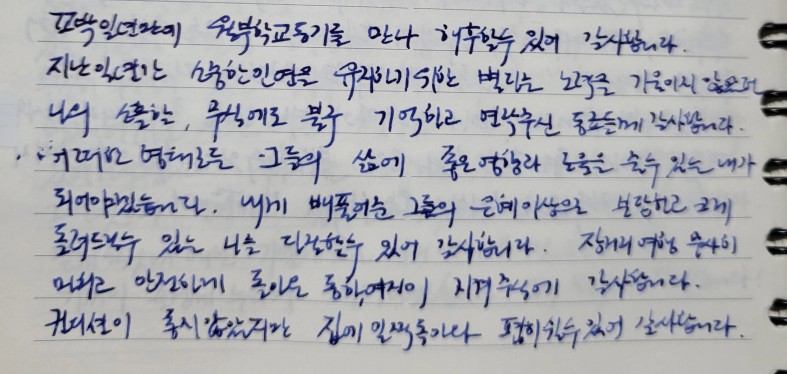 꼬박 일년만에 월부학교동기를 만나 해후할수 있어 감사합니다.
지난 일년간 소중한인연을 유지하기위한 별다른 노력을 기울이지 않으며
나의 소홀한, 무식에도 불구 기억하고 연락주신 동료들께 감사합니다.
어떠한 형태로든 그들의 삶에 좋은영향과 도움을 줄수 있는 내가
되어야겠습니다. 내게 베풀어준 그들의 은혜이상으로 보람있고 크게
돌려드릴수 있는 나를 다짐할수 있어 감사합니다. 장거리 여행 무사히
마치고 안전하게 돌아온 동하,여진이 지켜주심에 감사합니다.
컨디션이 좋지않았지만 집에 일찍 돌아와 편히쉴수 있어 감사합니다.